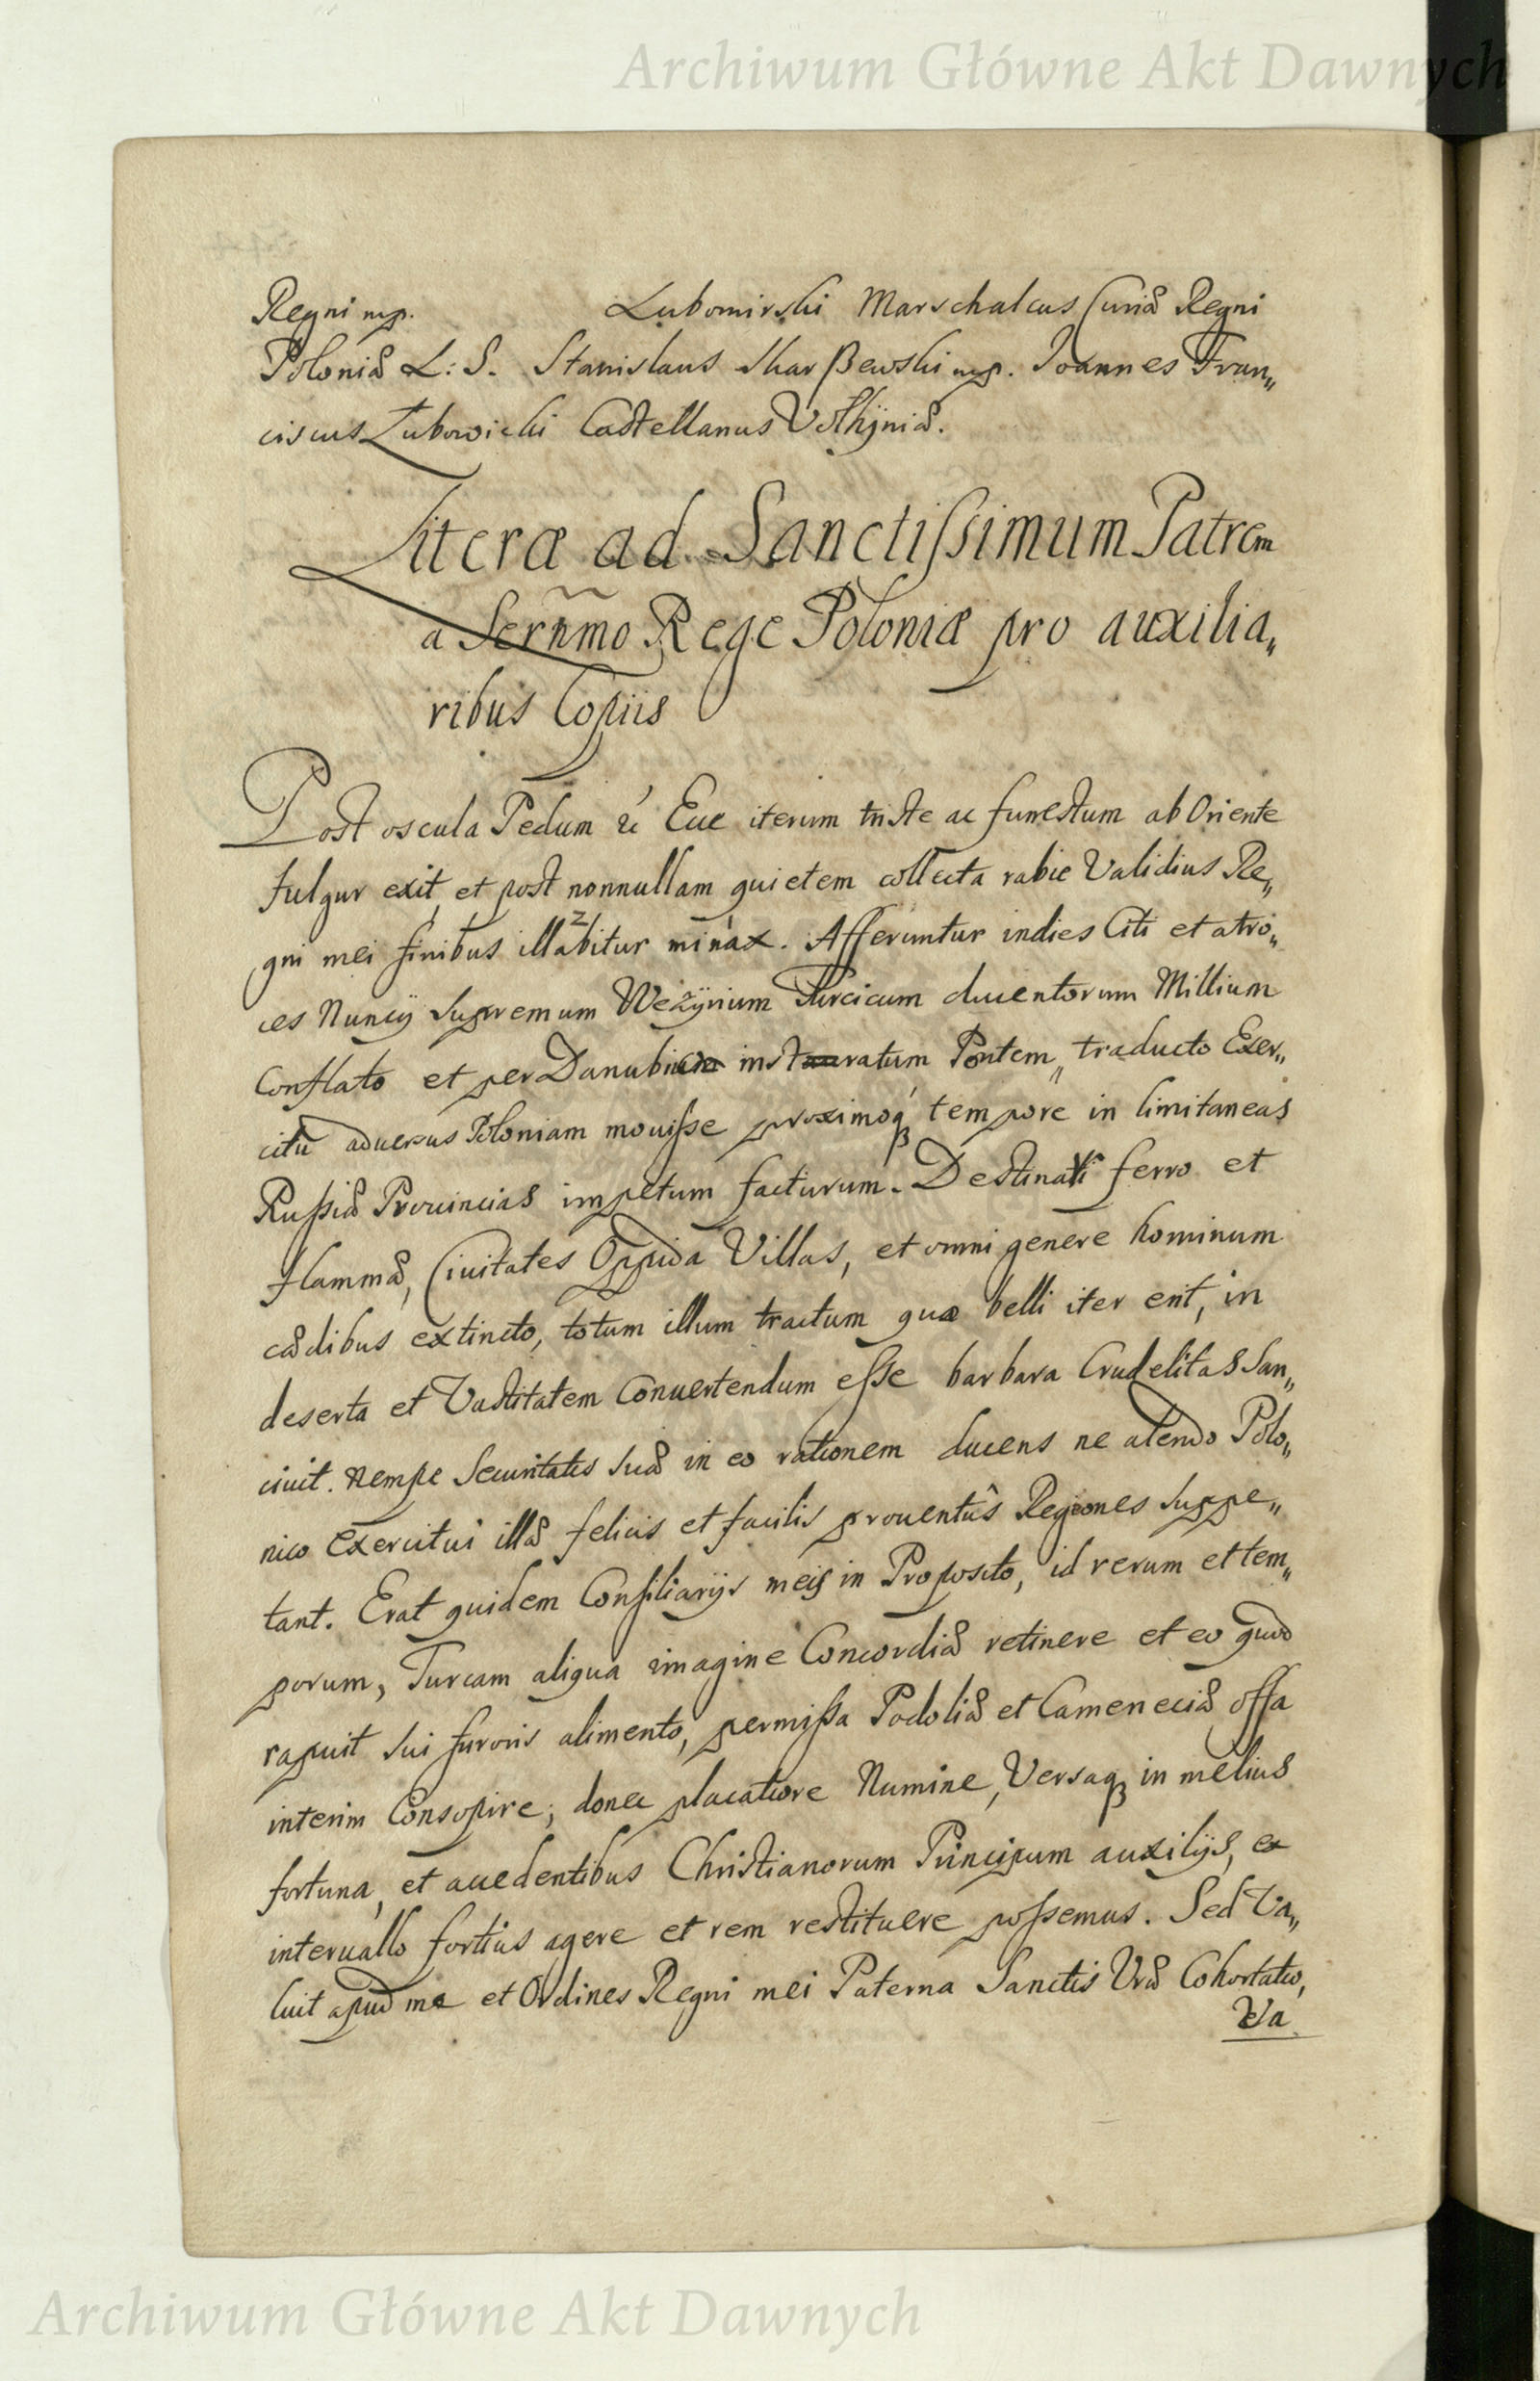 Archiwum Główne Akt Dawnych
Regni mp. Lubomirski Marschalcus Curiæ Regni
Poloniæ L: S. Stanislaus Skarßewski mp. Joannes Fran„
ciscus Łubowicki Castellanus Volhÿniæ.
Literæ ad Sanctißimum Patrem
a Sernmo Rege Poloniæ pro auxilia„
ribus Copiis
Post oscula Pedum &c Ecce iterum triste ac funestum ab Oriente
fulgur exit, et post nonnullam quietem collecta rabie Validius Re„
gni mei finibus illabitur minax. Afferuntur indies Citi et atro„
ces Nuncÿ Supremum Wezÿrium Turcicum ducentorum Millium
Conflato et per Danubium instauratum Pontem, traducto Exer„
citu aduersus Poloniam mouiſse proximoq; tempore in limitaneas
Rußiæ Prouincias impetum facturum. Destinati ferro et
flammæ, Ciuitates Oppida Villas, et omni genere hominum
cædibus extincto, totum illum tractum qua belli iter erit, in
deserta et Vastitatem Conuertendum eſse barbara Crudelitas San„
ciuit. Nempe Securitatis suæ in eo rationem ducens ne alendo Polo„
nico Exercitui illæ felicis et facilis prouentûs Regiones Suppe„
tant. Erat quidem Consiliarÿs meis in Proposito, id rerum et tem„
porum, Turcam aliqua imagine Concordiæ retinere et eo quod
rapuit sui furoris alimento, permißa Podoliæ et Cameneciæ offa
interim Consopire; donec placatiore Numine, Versaq; in melius
fortuna, et accedentibus Christianorum Principum auxilÿs, ex
interuallo fortius agere et rem restituere poſsemus. Sed Va„
luit apud me et Ordines Regni mei Paterna Sanctis Vræ Cohortatio,
Va
Archiwum Główne Akt Dawnych